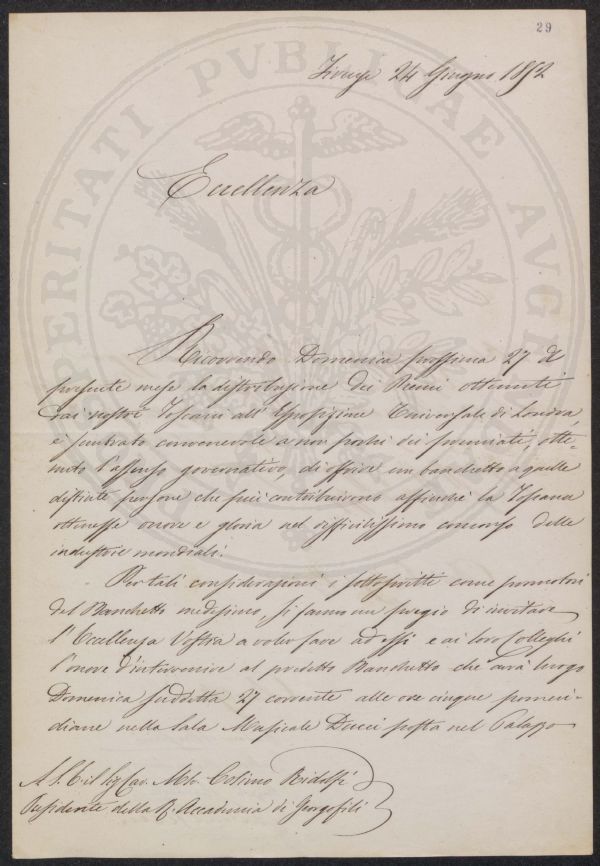 29
Firenze 24 Giugno 1852
Eccellenza
Ricorrendo Domenica prossima 27 del
presente mese la distribuzione dei Premi ottenuti
dai nostri Toscani all' Esposizione Universale di Londra,
è sembrato convenevole a non pochi dei premiati, otte-
nuto l'assenso governativo, di offrire un banchetto a quelle
distinte persone che più contribuirono affinchè la Toscana
ottenesse onore e gloria nel difficilissimo concorso delle
industrie mondiali.
Per tali considerazioni i sottoscritti come promotori
del Banchetto medesimo, si fanno un pregio di invitare
l'Eccellenza Vostra a voler fare ad essi e ai loro Colleghi
l'onore d'intervenire al predetto Banchetto che avrà luogo
Domenica suddetta 27 corrente alle ore cinque pomeri-
diane nella Sala Musicale Ducci posta nel Palazzo
A S. E. il Sig Cav. Mse. Cosimo Ridolfi
Presidente della R. Accademia di Georgofili
PROSPERITATI PVBLICAE AVGENDAE